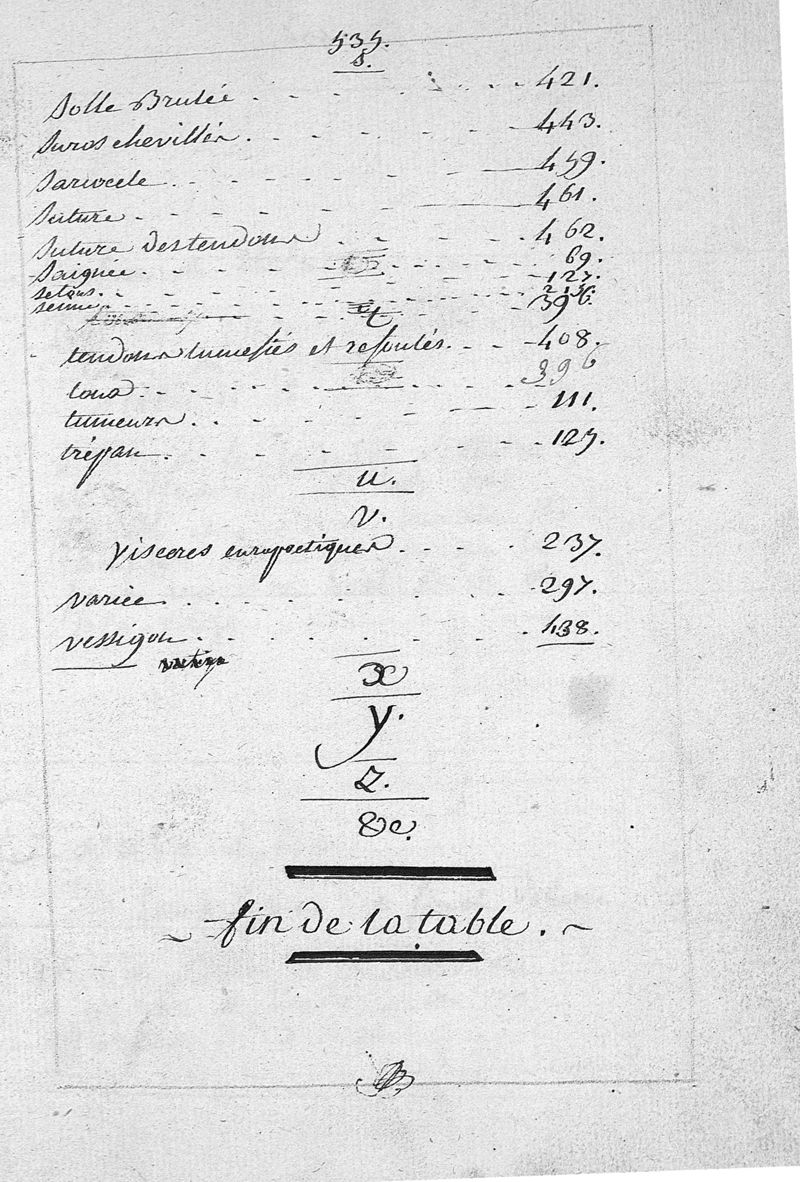 535.
S.
Solle Brulée . . . . . 421.
Suros chevillés . . . . . 443.
Sarcocele . . . . . 459.
Suture . . . . . 461.
Suture des tendons . . . . . 462.
Saignée . . . . . 69.
Setons . . . . . 127.
Seime . . . . .
t 396.
tendons tumefiés et refoulés . . . 408.
tous . . . . . 396
tumeurs . . . . . 111.
trépan . . . . . 125.
u.
v.
Visceres empoetiques . . . . 237.
varice . . . . . 297.
vessigon . . . . . 438.
x
y.
z.
&c.
fin de la table.